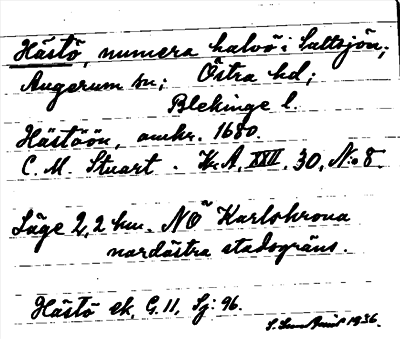 Hästö, numera halvö i Saltsjön;
Augerum sn; Östra hd;
Blekinge l.
Hästöön, omkr. 1680.
C. M. Stuart. Kr. A, XXII, 30, No 8.
Läge 2,2 km. NO Karlskrona
nordöstra stadsgräns.
Hästö ek, G. 11, Sj: 96.
1936.